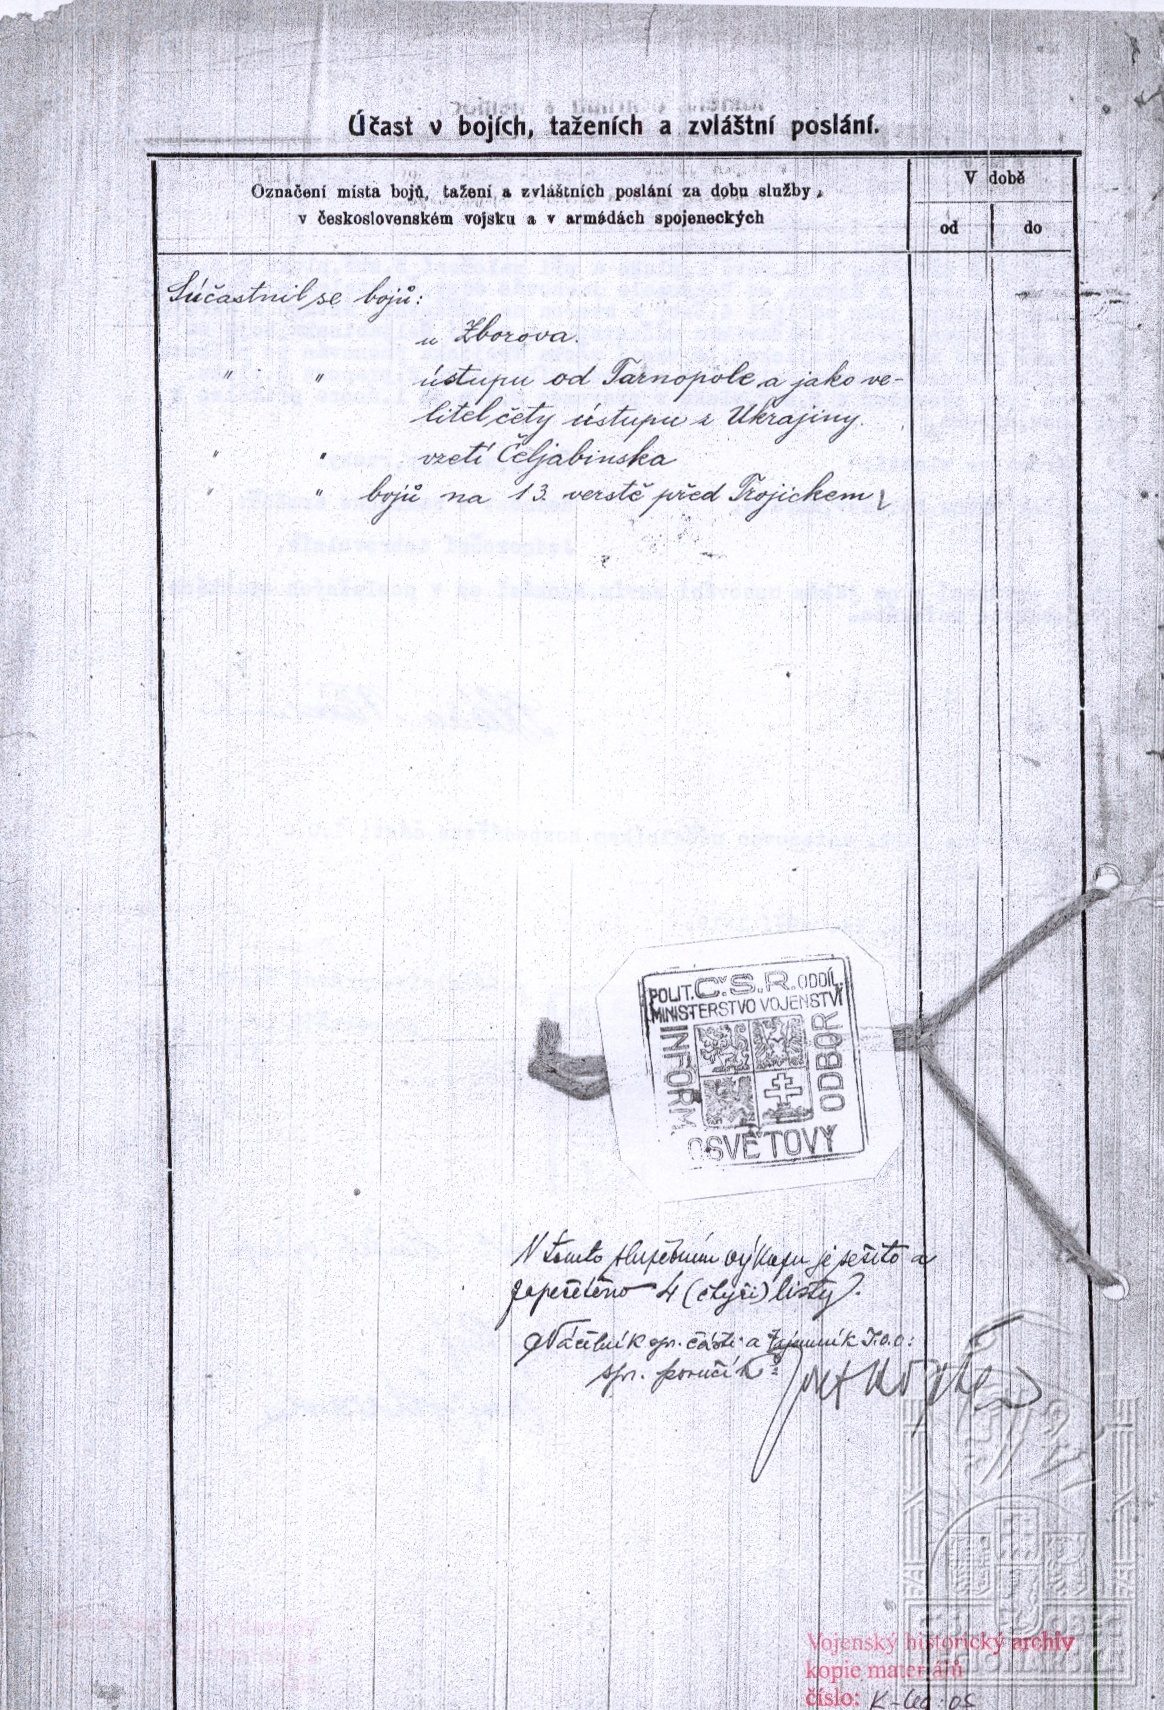 Účast v bojích, taženích a zvláštní poslání.
Označení místa bojů, tažení a zvláštních poslání za dobu služby
v československém vojsku a v armádách spojeneckých
V době
od
do
Súčastnil se bojů:
u Zborova.
" " ústupu od Tarnopole a jako ve-
litel čety ústupu z Ukrajiny.
" " vzetí Čeljabinska
" " bojů na 13. verstě před Trojickem
POLIT. Č.S.R. ODDÍL.
MINISTERSTVO VOJENSTVÍ
INFORM.
ODBOR
OSVĚTOVÝ
V tomto služebním výkazu je sešito a
zapečetěno 4 (čtyři) listy.
Náčelník spr. části a tajemník I.o.o:
spr. poručík:
Vojenský historický archiv
kopie materiálů
číslo: